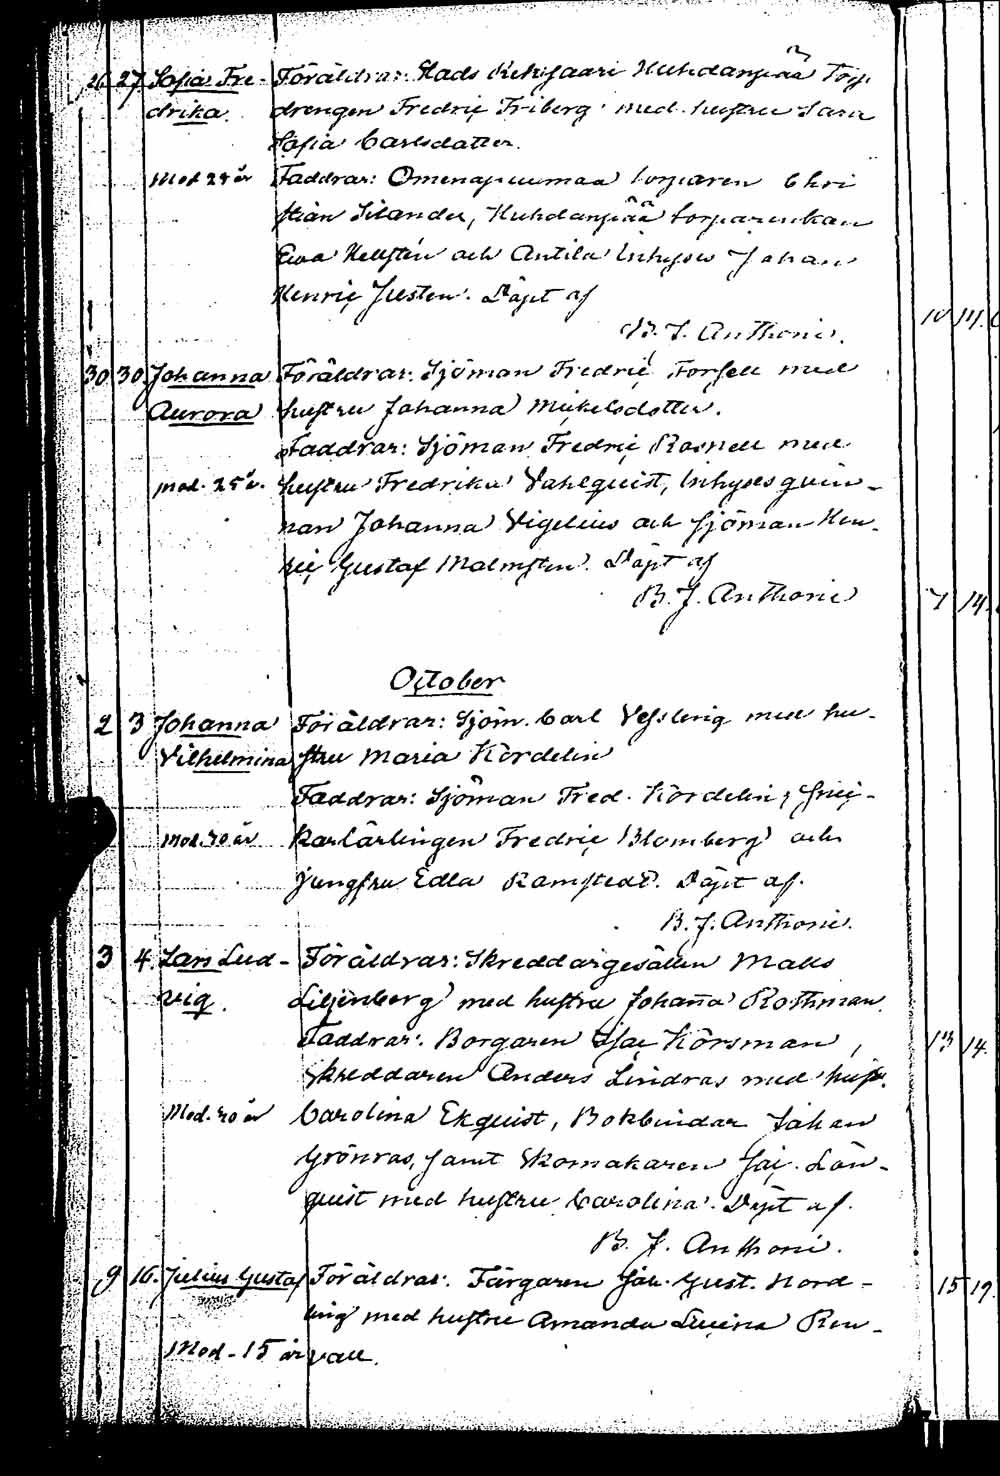 26 27 Sofia Fre- Föräldrar: Stads Huhdanpää Torp
drika. drengen Fredric Friberg med hustru Sara
Sofia Carlsdotter.
Mod. 28 år Faddrar: Omenapuumaa torparen Chri
stian Silander, Huhdanpää torparenkan
Eva Hellstén och Antila Inhyses Johan
Henric Justen. Döpt af
B. J. Anthoni.
30 30 Johanna Föräldrar: Sjöman Fredric Forsell med
Aurora hustru Johanna Mickelsdotter.
Faddrar: Sjöman Fredric Rosnell med
mod. 25 år. hustru Fredrika Vahlquist, Inhyses quin-
nan Johanna Vigelius och sjöman Hen-
ric Gustaf Malmsten. Döpt af
B. J. Anthoni
October
2 3 Johanna Föräldrar: Sjöm. Carl Vessling med hu-
Vilhelmina stru Maria Kordelin
Faddrar: Sjöman Fred. Kordelin,
mod. 30 år karlärlingen Fredric Blomberg och
Jungfru Edla Ramstedt. Döpt af.
B. J. Anthoni.
3 4. Lars Lud- Föräldrar: Skreddargesällen Matts
vig. Liljenberg med hustru Johanna Rothman.
Faddrar: Borgaren Isac Körsman,
skreddaren Anders Lindras med hustr.
Mod. 30 år Carolina Ekquist, Bokbindar Johan
Grönras, samt Skomakaren Lön-
quist med hustru Carolina. Döpt af.
B. J. Anthoni.
9 16. Julius Gustaf Föräldrar: Färgaren Gust. Nord-
ling med hustru Amanda Lucina Ren-
Mod. 15 år vall.